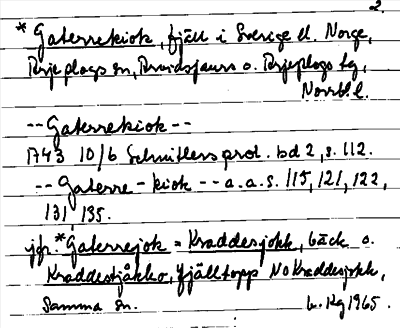 2.
* Gaterrekiok, fjäll i Sverige el. Norge,
Arjeplogs sn, Arvidsjaurs o. Arjeplogs tg,
Norrb l.
-- Gaterrekiok --
1743 10/6 Schnitlers prot. bd 2, s. 112.
-- Gaterre-kiok -- a.a.s. 115, 121, 122,
131, 135.
jfr. *Gaterrejok = Kraddesjokk, bäck o.
Kraddestjåkko, fjälltopp NO Kraddesjokk,
samma sn.
b. Kg 1965.